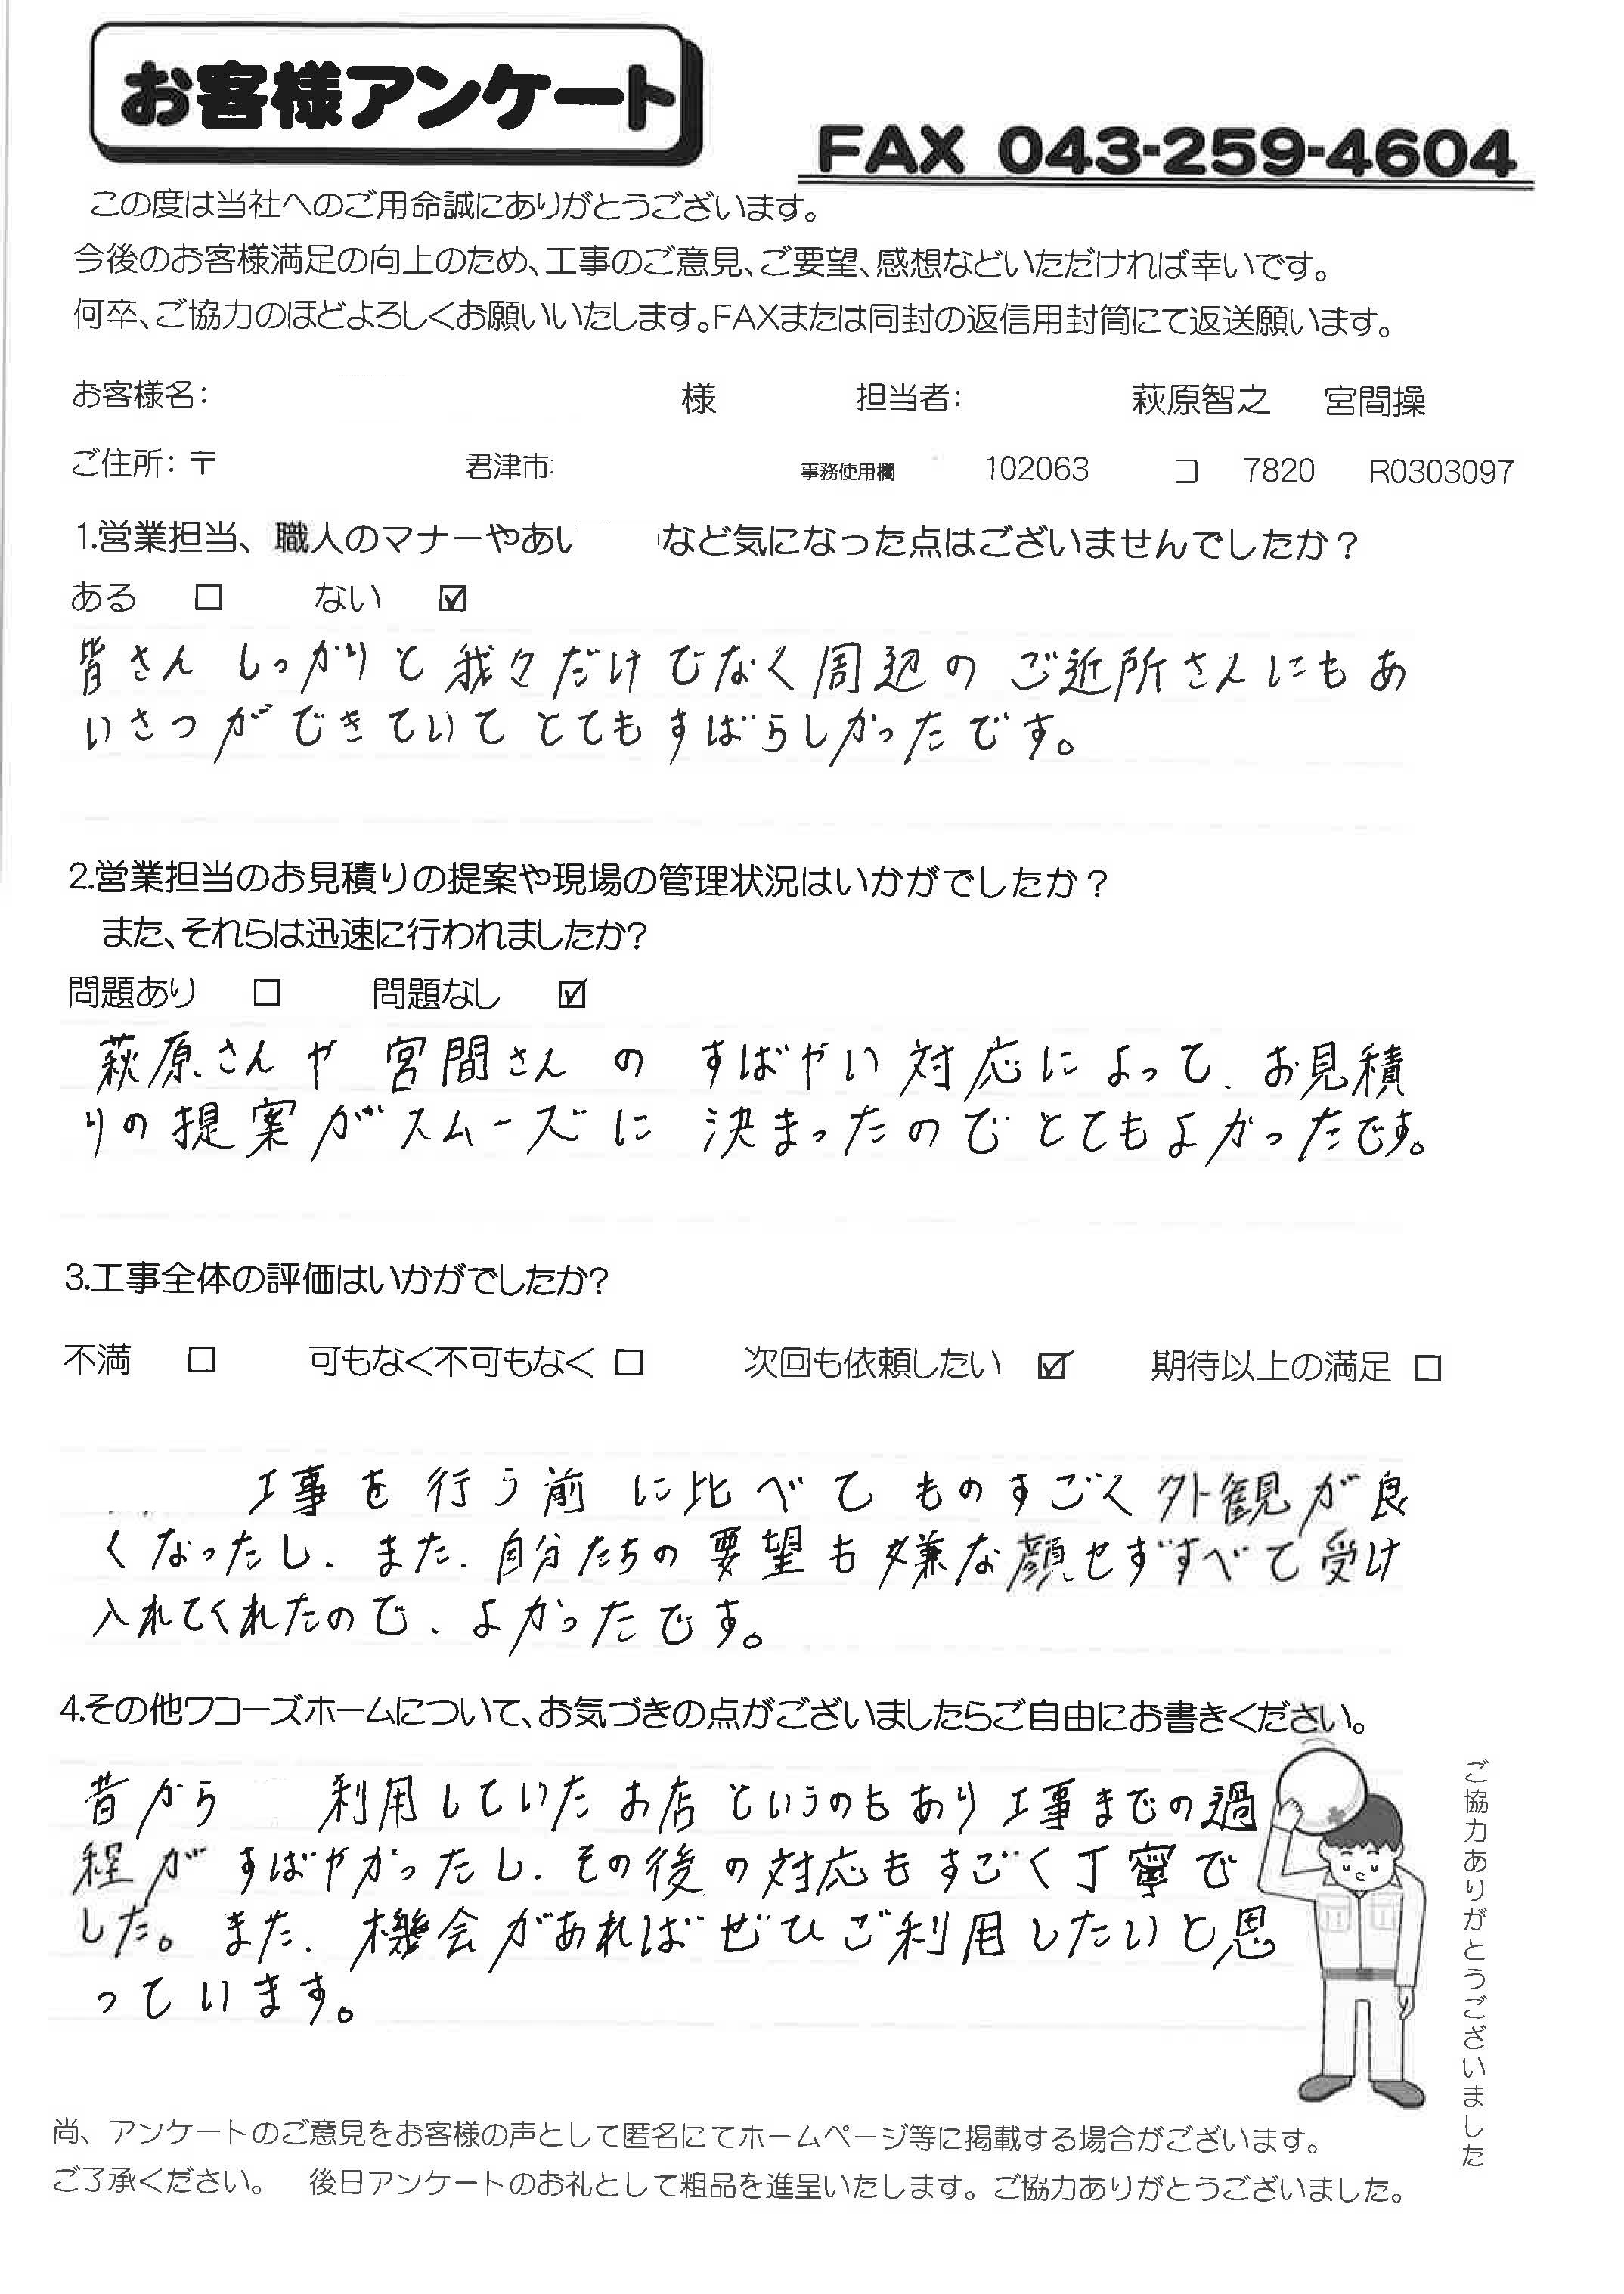 お客様アンケート
FAX 043-259-4604
この度は当社へのご用命誠にありがとうございます。
今後のお客様満足の向上のため、工事のご意見、ご要望、感想などいただければ幸いです。
何卒、ご協力のほどよろしくお願いいたします。FAXまたは同封の返信用封筒にて返送願います。
お客様名： 様 担当者： 萩原智之 宮間操
ご住所：〒 君津市 事務使用欄 102063 コ 7820 R0303097
1.営業担当、職人のマナーやあい など気になった点はございませんでしたか？
ある □ ない ☑
皆さん しっかりと 我々だけでなく周辺の ご近所さんにもあ
いさつができていて とてもすばらしかったです。
2.営業担当のお見積りの提案や現場の管理状況はいかがでしたか？
また、それらは迅速に行われましたか?
問題あり □ 問題なし ☑
萩原さんや 宮間さん の すばやい対応によって、お見積
りの提案がスムーズに 決まったのでとてもよかったです。
3.工事全体の評価はいかがでしたか?
不満 □ 可もなく不可もなく □ 次回も依頼したい ☑ 期待以上の満足 □
工事を行う前に比べて ものすごく外観が良
くなったし、また、自分たちの要望も嫌な顔せずすべて受け
入れてくれたので、よかったです。
4.その他ワコーズホームについて、お気づきの点がございましたらご自由にお書きください。
昔から 利用していたお店というのもあり工事までの過
程がすばやかったし、その後の対応もすごく丁寧で
した。また、機会があればぜひご利用したいと思
っています。
ご協力ありがとうございました
尚、アンケートのご意見をお客様の声として匿名にてホームページ等に掲載する場合がございます。
ご了承ください。 後日アンケートのお礼として粗品を進呈いたします。ご協力ありがとうございました。